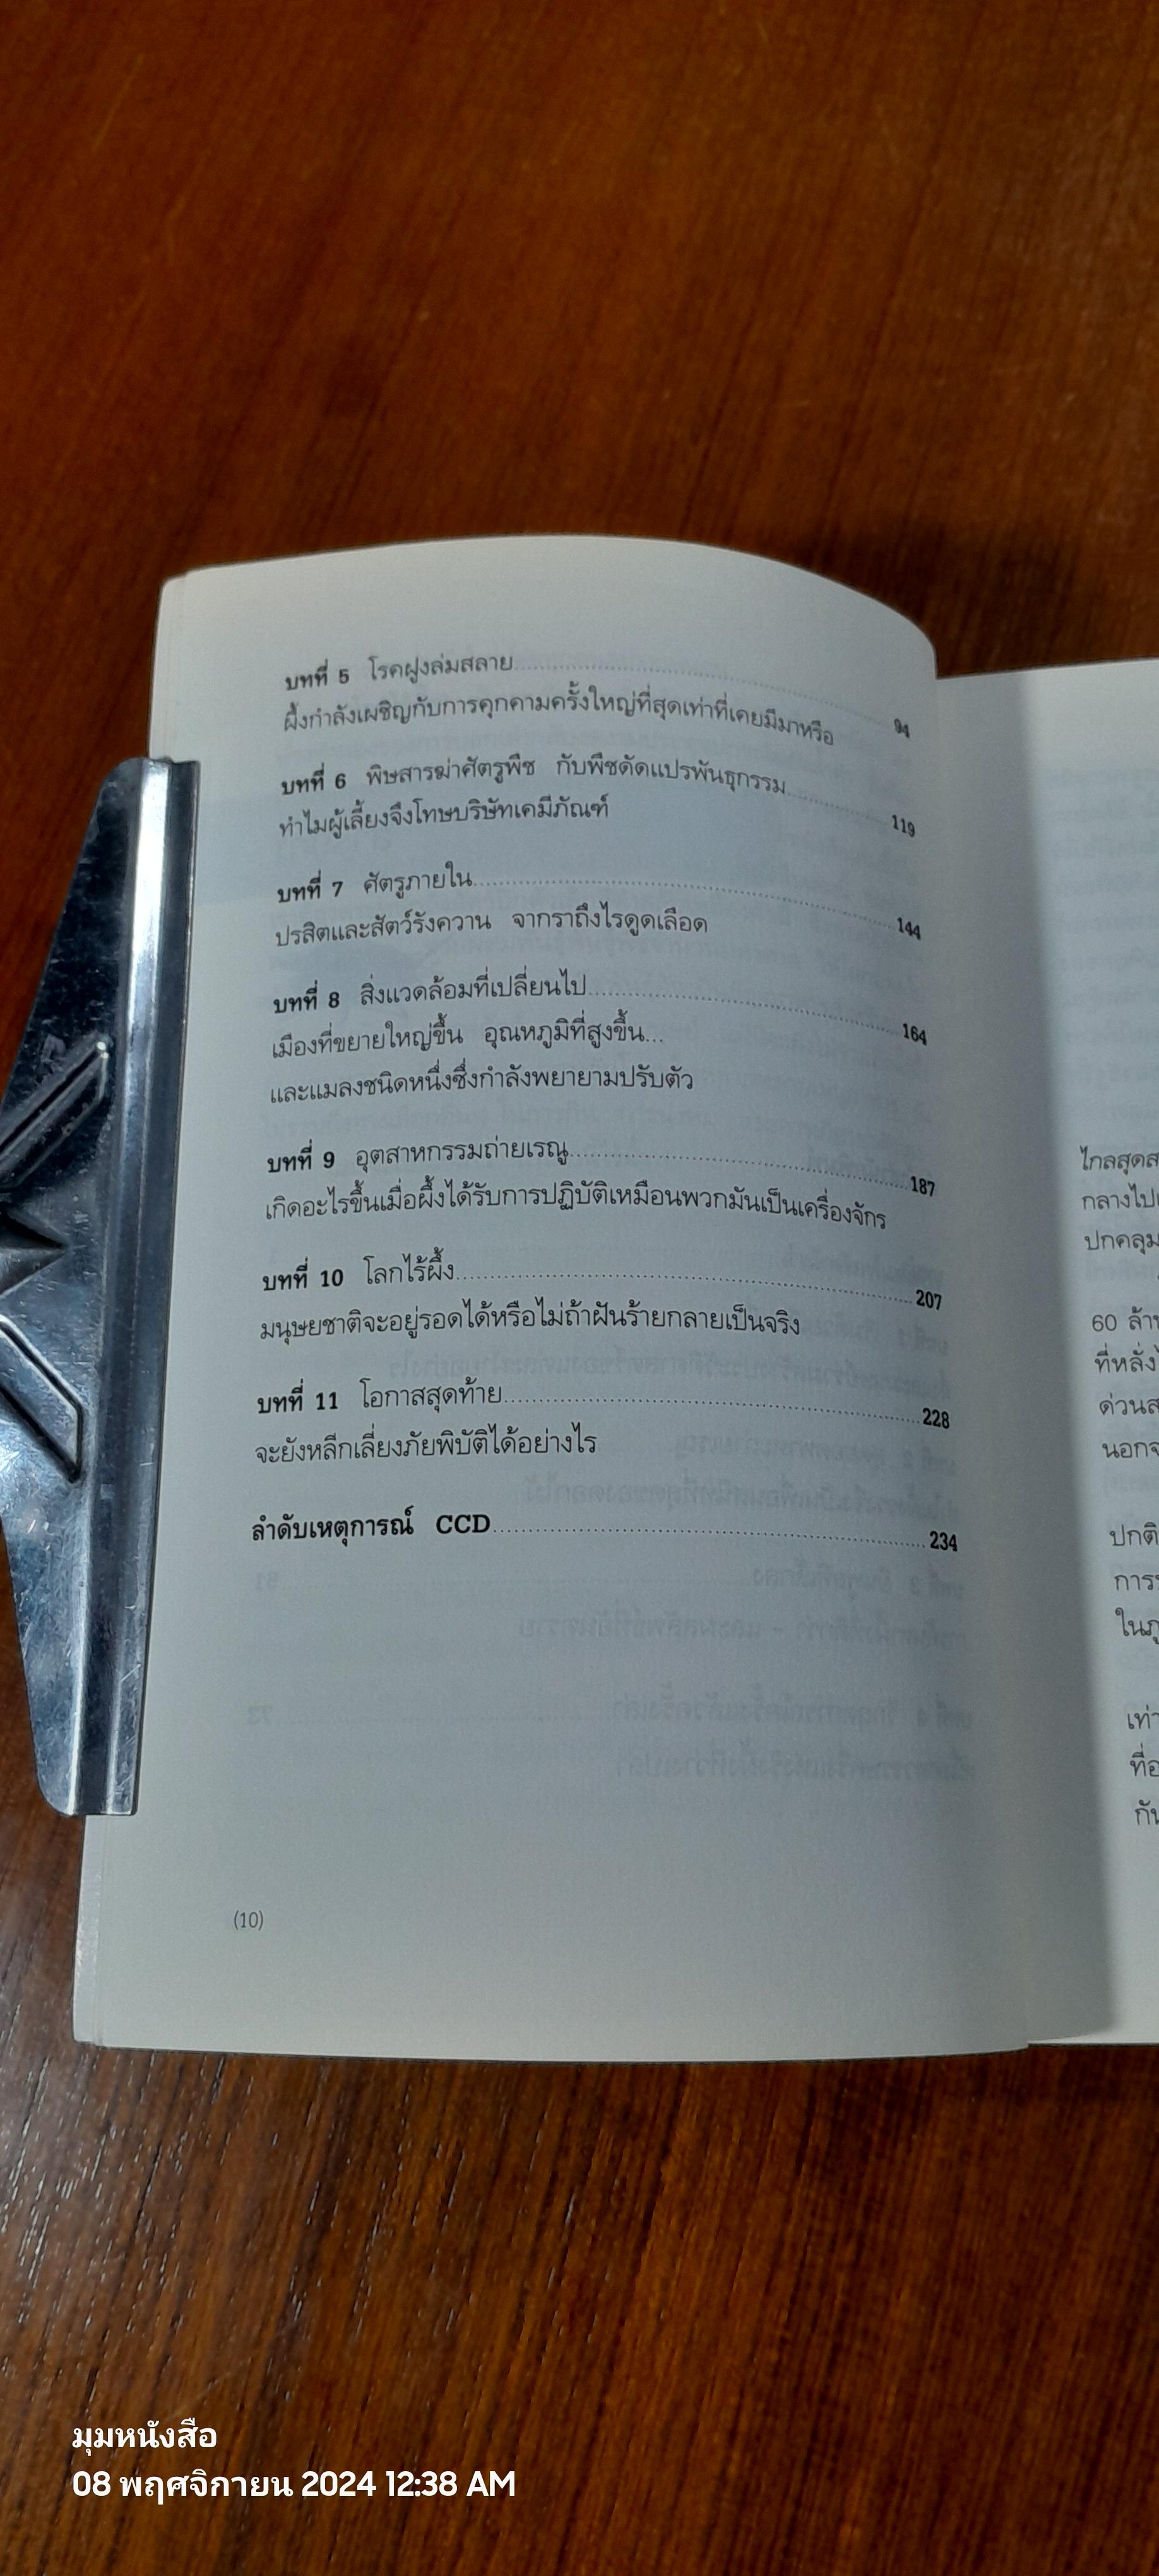 บทที่ 5 โรคฝูงล่มสลาย........................94
ผึ้งกำลังเผชิญกับการคุกคามครั้งใหญ่ที่สุดเท่าที่เคยมีมาหรือ
บทที่ 6 พิษสารฆ่าศัตรูพืช กับพืชดัดแปรพันธุกรรม........119
ทำไมผู้เลี้ยงจึงโทษบริษัทเคมีภัณฑ์
บทที่ 7 ศัตรูภายใน........................144
ปรสิตและสัตว์รังควาน จากราถึงไรดูดเลือด
บทที่ 8 สิ่งแวดล้อมที่เปลี่ยนไป........................164
เมืองที่ขยายใหญ่ขึ้น อุณหภูมิที่สูงขึ้น...
และแมลงชนิดหนึ่งซึ่งกำลังพยายามปรับตัว
บทที่ 9 อุตสาหกรรมถ่ายเรณู........................187
เกิดอะไรขึ้นเมื่อผึ้งได้รับการปฏิบัติเหมือนพวกมันเป็นเครื่องจักร
บทที่ 10 โลกไร้ผึ้ง........................207
มนุษยชาติจะอยู่รอดได้หรือไม่ถ้าฝันร้ายกลายเป็นจริง
บทที่ 11 โอกาสสุดท้าย........................228
จะยังหลีกเลี่ยงภัยพิบัติได้อย่างไร
ลำดับเหตุการณ์ CCD........................234
(10)
ไกลสุดส
กลางไป
ปกคลุม
60 ล้า
ที่หลั่ง
ด่วนส
นอกจ
ปกติ
การ
ในภู
เท่า
ที่อ
กัน
มุมหนังสือ
08 พฤศจิกายน 2024 12:38 AM